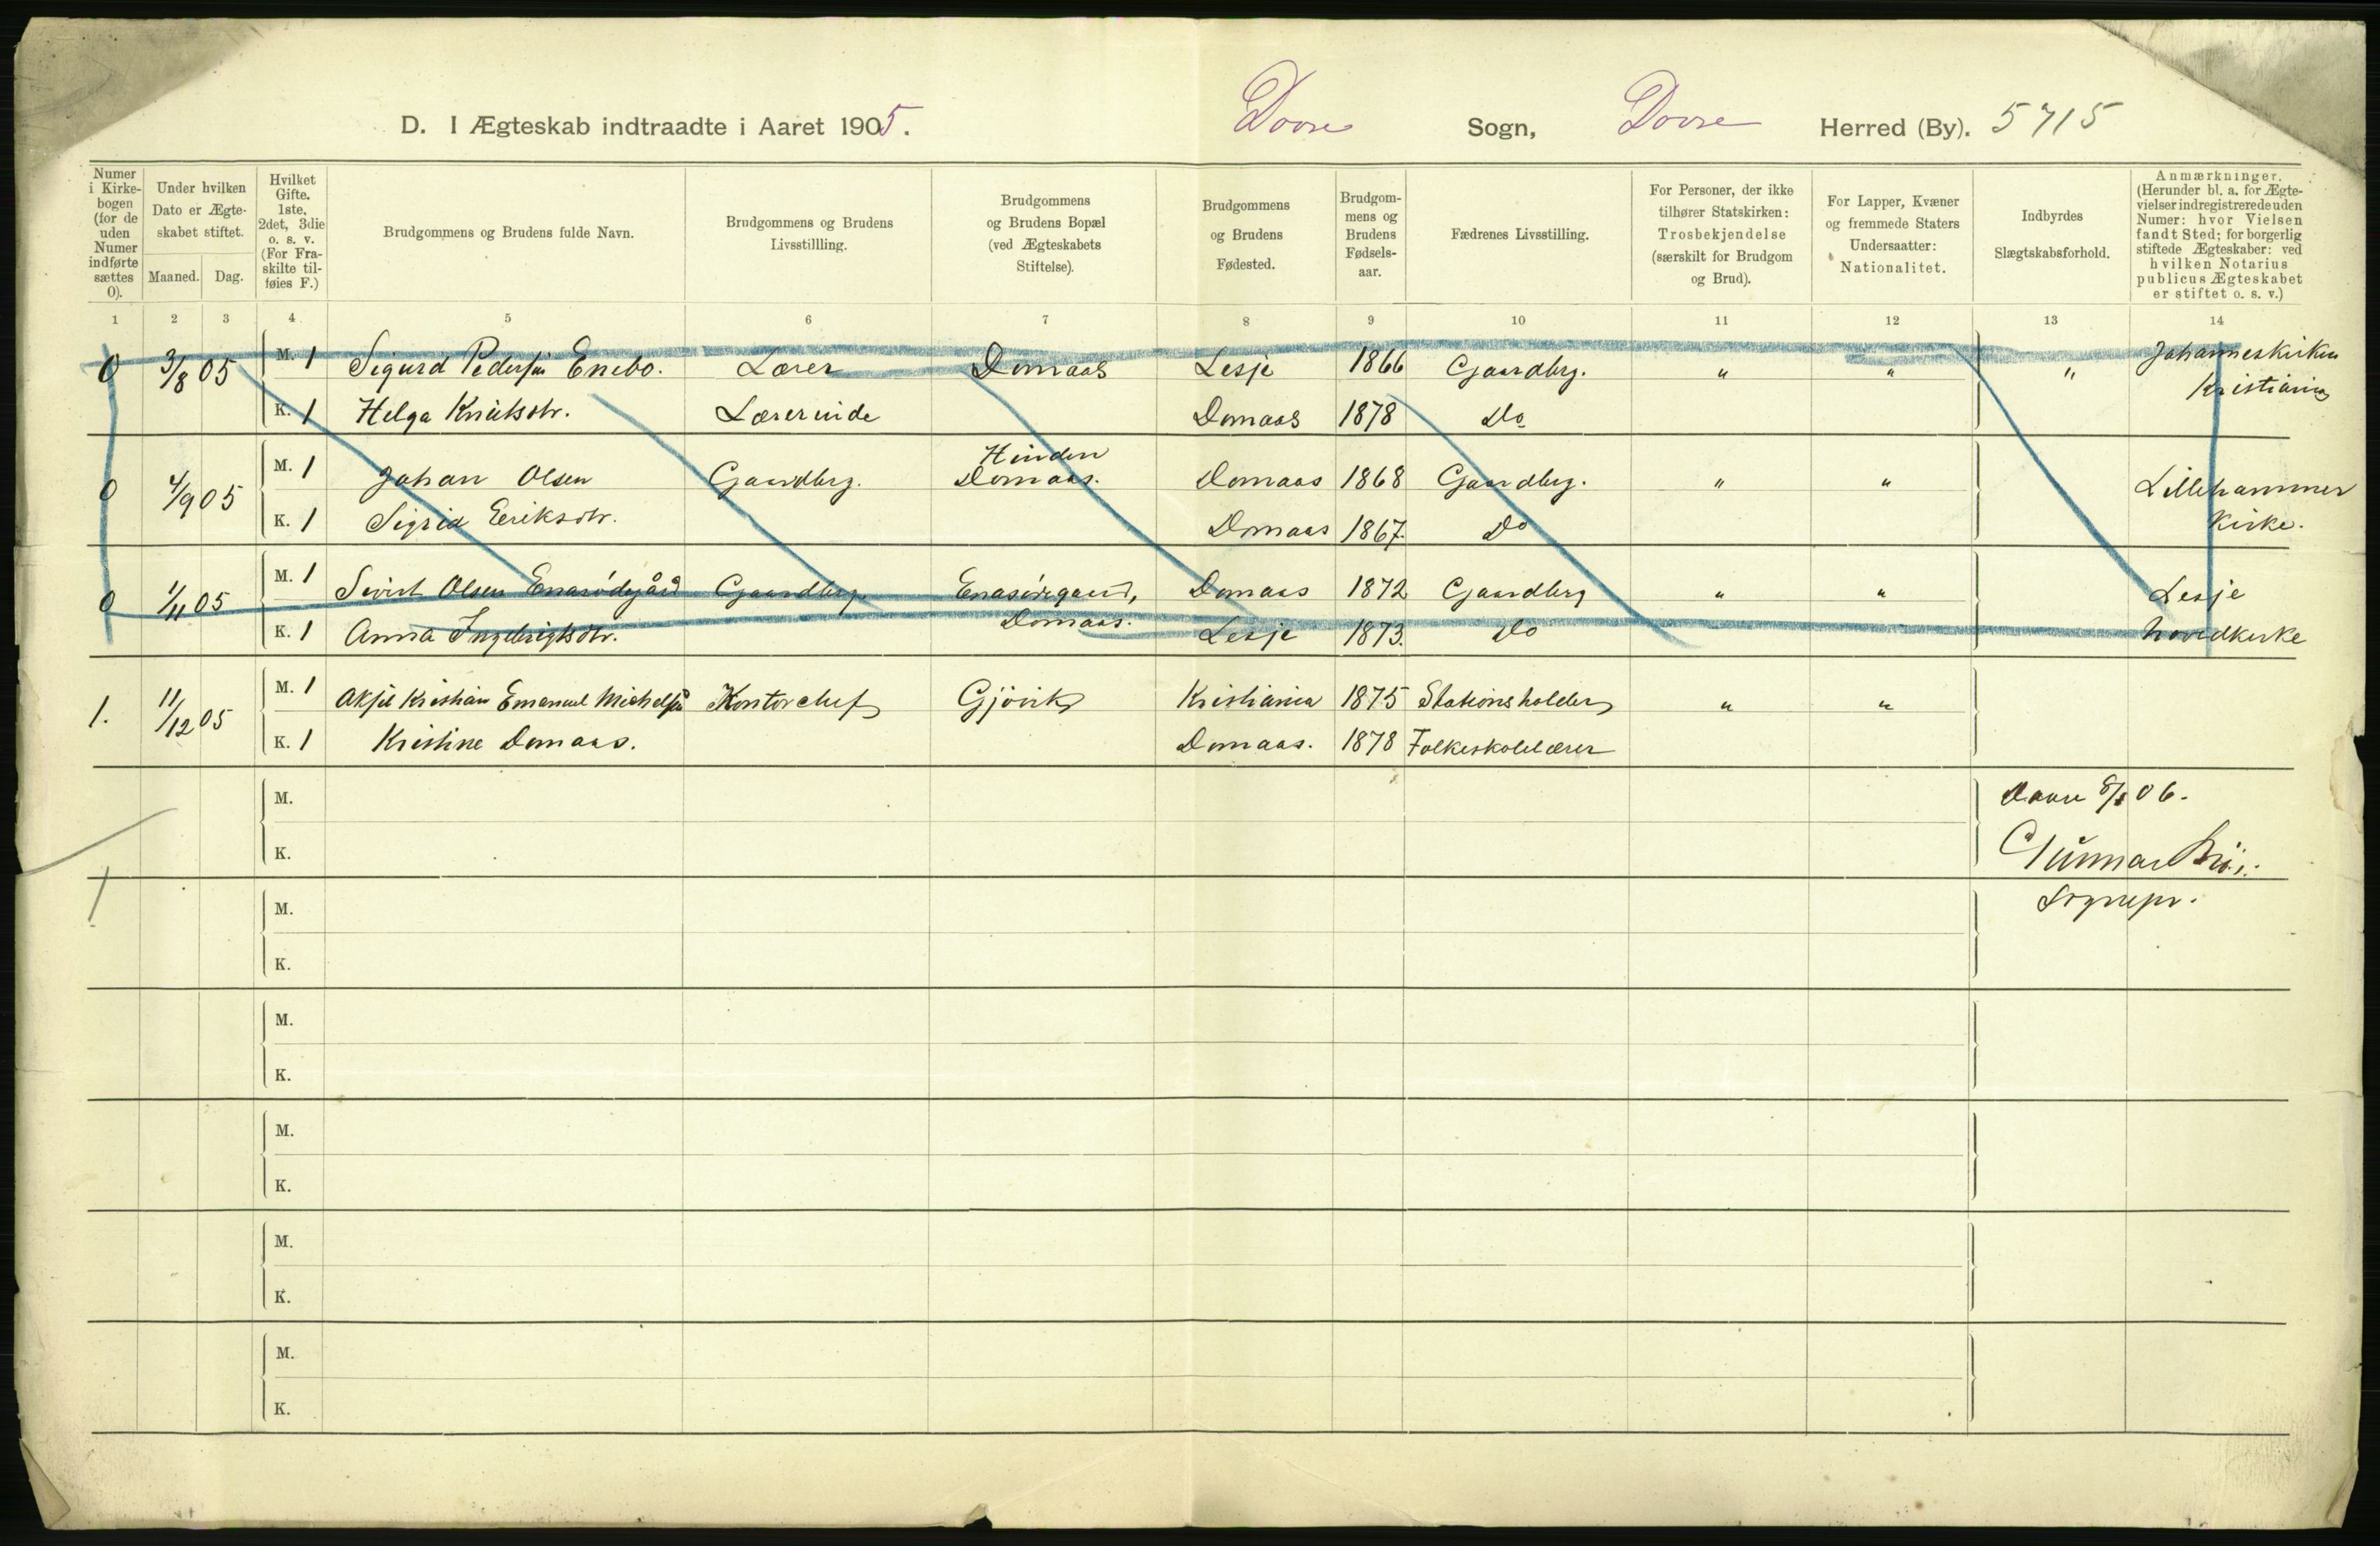 D. I Ægteskab indtraadte i Aaret 1905. Dovre Sogn, Dovre Herred (By). 5715
Numer i Kirkebogen (for de uden Numer indførte sættes 0).
Under hvilken Dato er Ægteskabet stiftet.
Maaned. Dag.
Hvilket Gifte. 1ste, 2det, 3die o. s. v. (For Fraskilte tilføies F.)
Brudgommens og Brudens fulde Navn.
Brudgommens og Brudens Livsstillling.
Brudgommens og Brudens Bopæl (ved Ægteskabets Stiftelse).
Brudgommens og Brudens Fødested.
Brudgommens og Brudens Fødselsaar.
Fædrenes Livsstilling.
For Personer, der ikke tilhører Statskirken: Trosbekjendelse (særskilt for Brudgom og Brud).
For Lapper, Kvæner og fremmede Staters Undersaatter: Nationalitet.
Indbyrdes Slægtskabsforhold.
Anmærkninger. (Herunder bl. a. for Ægtevielser indregistrerede uden Numer: hvor Vielsen fandt Sted; for borgerlig stiftede Ægteskaber: ved hvilken Notarius publicus Ægteskabet er stiftet o. s. v.)
1 2 3 4 5 6 7 8 9 10 11 12 13 14
0 3/8 05 M. 1 Sigurd Pedersen Enebo. Lærer Domaas Lesje 1866 Gaardbrg. " " " Johanneskirken Kristiania
K. 1 Helga Knutsdtr. Lærerinde Domaas 1878 Do
0 4/9 05 M. 1 Johan Olsen Gaardbrg. Hinden Domaas. Domaas 1868 Gaardbrg. " " Lillehammer
K. 1 Sigrid Eeriksdtr. Domaas 1867. Do Kirke.
0 1/11 05 M. 1 Sivert Olsen Gaardbrg. Domaas. Domaas 1872 Gaardbrg " " Lesje
K. 1 Anna Ingebrigtsdtr. Lesje 1873. Do hovedkirke
1. 11/12 05 M. 1 Kristian Emanuel Michelsen Kontorchef Gjøvik Kristiania 1875 Stationsholder " "
K. 1 Kristine Domaas. Domaas. 1878 Folkeskolelærer
M. Dovre 06.
K. Gunnar
M. Sognepr.
K.
M.
K.
M.
K.
M.
K.
M.
K.